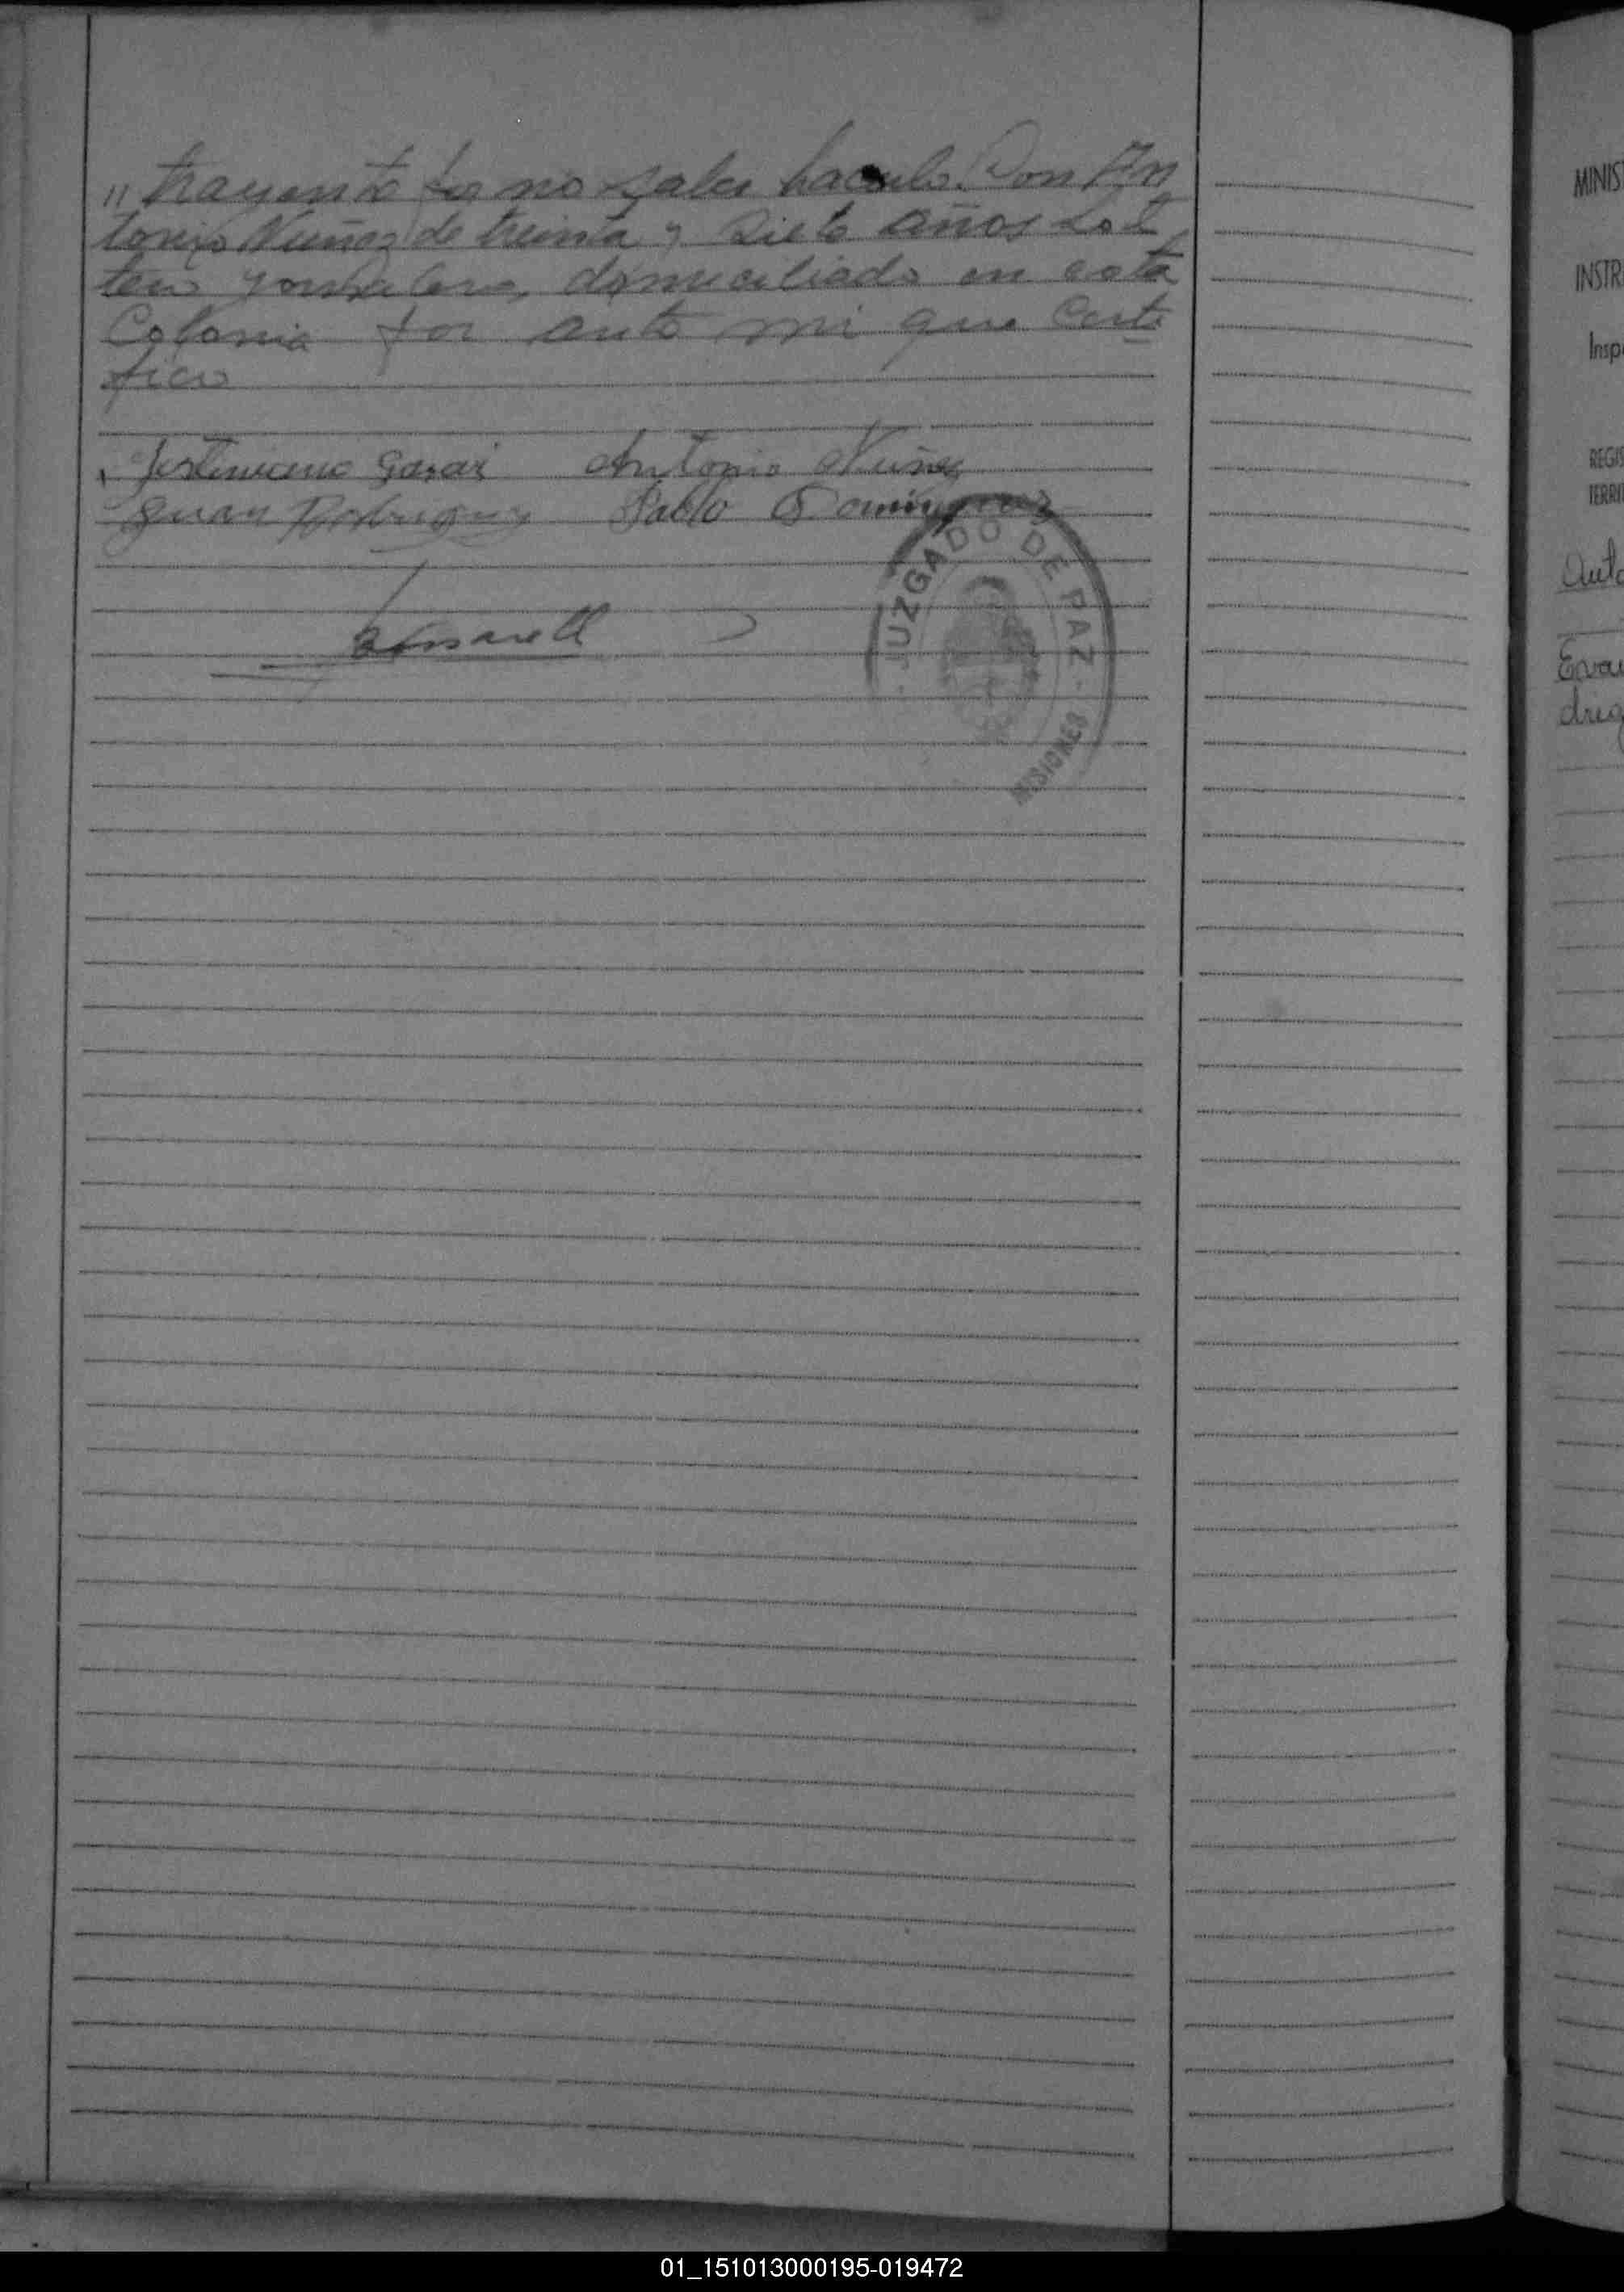 " trayente por no saber hacerlo. Don An
tonio Nuñez de treinta y siete años sol
tero domiciliado en esta
Colonia por ante mi que Certi
fico
Garai Antonio Nuñez
Juan Rodriguez Pablo Dominguez
JUZGADO DE PAZ
MISIONES
MINIS
INSTR
Insp
REGIS
TERRI
drig
01_151013000195-019472